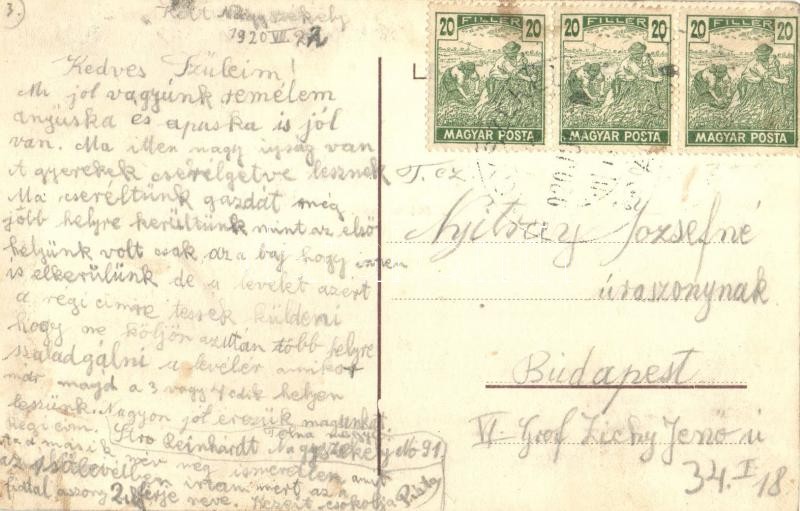 3.
Kelt Nagyszékely
1920 VII 22
Kedves Szüleim!
Mi jól vagyunk remélem
anyuska és apuska is jól
van. Ma itten nagy ujság van
A gyerekek cserélgetve lesznek
Ma cseréltünk gazdát még
jobb helyre kerültünk mint az első
helyünk volt csak az a baj hogy
is elkerülünk de a levelet azért
a regi cimre tessék küldeni
hogy ne köljön azután több helyre
szaladgálni a levélér amikor
már majd a 3 vagy 4edik helyen
leszünk. Nagyon jól érezük magunkat
Regi cim. Tolna megye
Stro Reinhárdt Nagyszékely No 91.
másik név még ismeretlen amit
az 1ső levélben irtam mert az a
fiatal asszony 2. férje neve. Kezeit csókolja Pista
20 FILLER 20
MAGYAR POSTA
20 FILLER 20
MAGYAR POSTA
20 FILLER 20
MAGYAR POSTA
T. cz
Nyitray Jozsefné
úraszonynak
Budapest
VI Grof Zichy Jenő ú
34. I/18